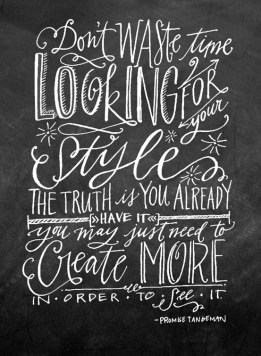 Don't WASTE time
LOOKING FOR
your
Style
THE TRUTH is YOU ALREADY
HAVE IT
you may just need to
Create MORE
IN · ORDER · TO · See · IT
-PROMISE TANGEMAN